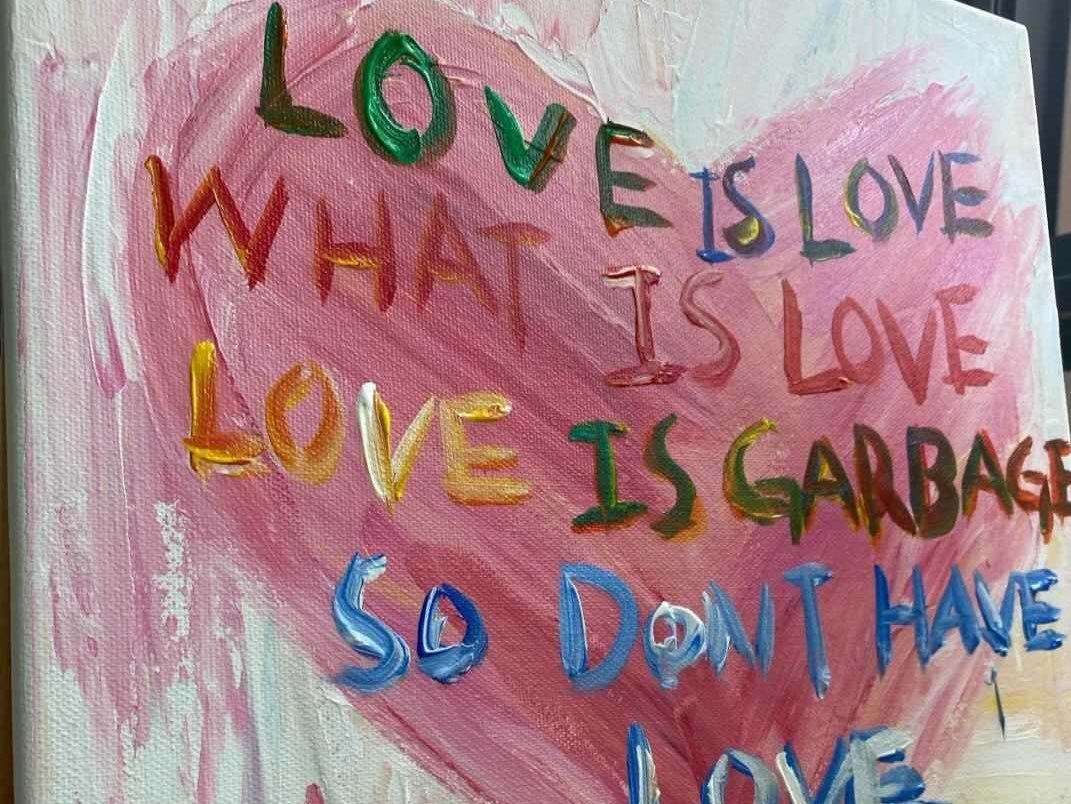 LOVE IS LOVE
WHAT IS LOVE
LOVE IS GARBAGE
SO DONT HAVE
LOVE